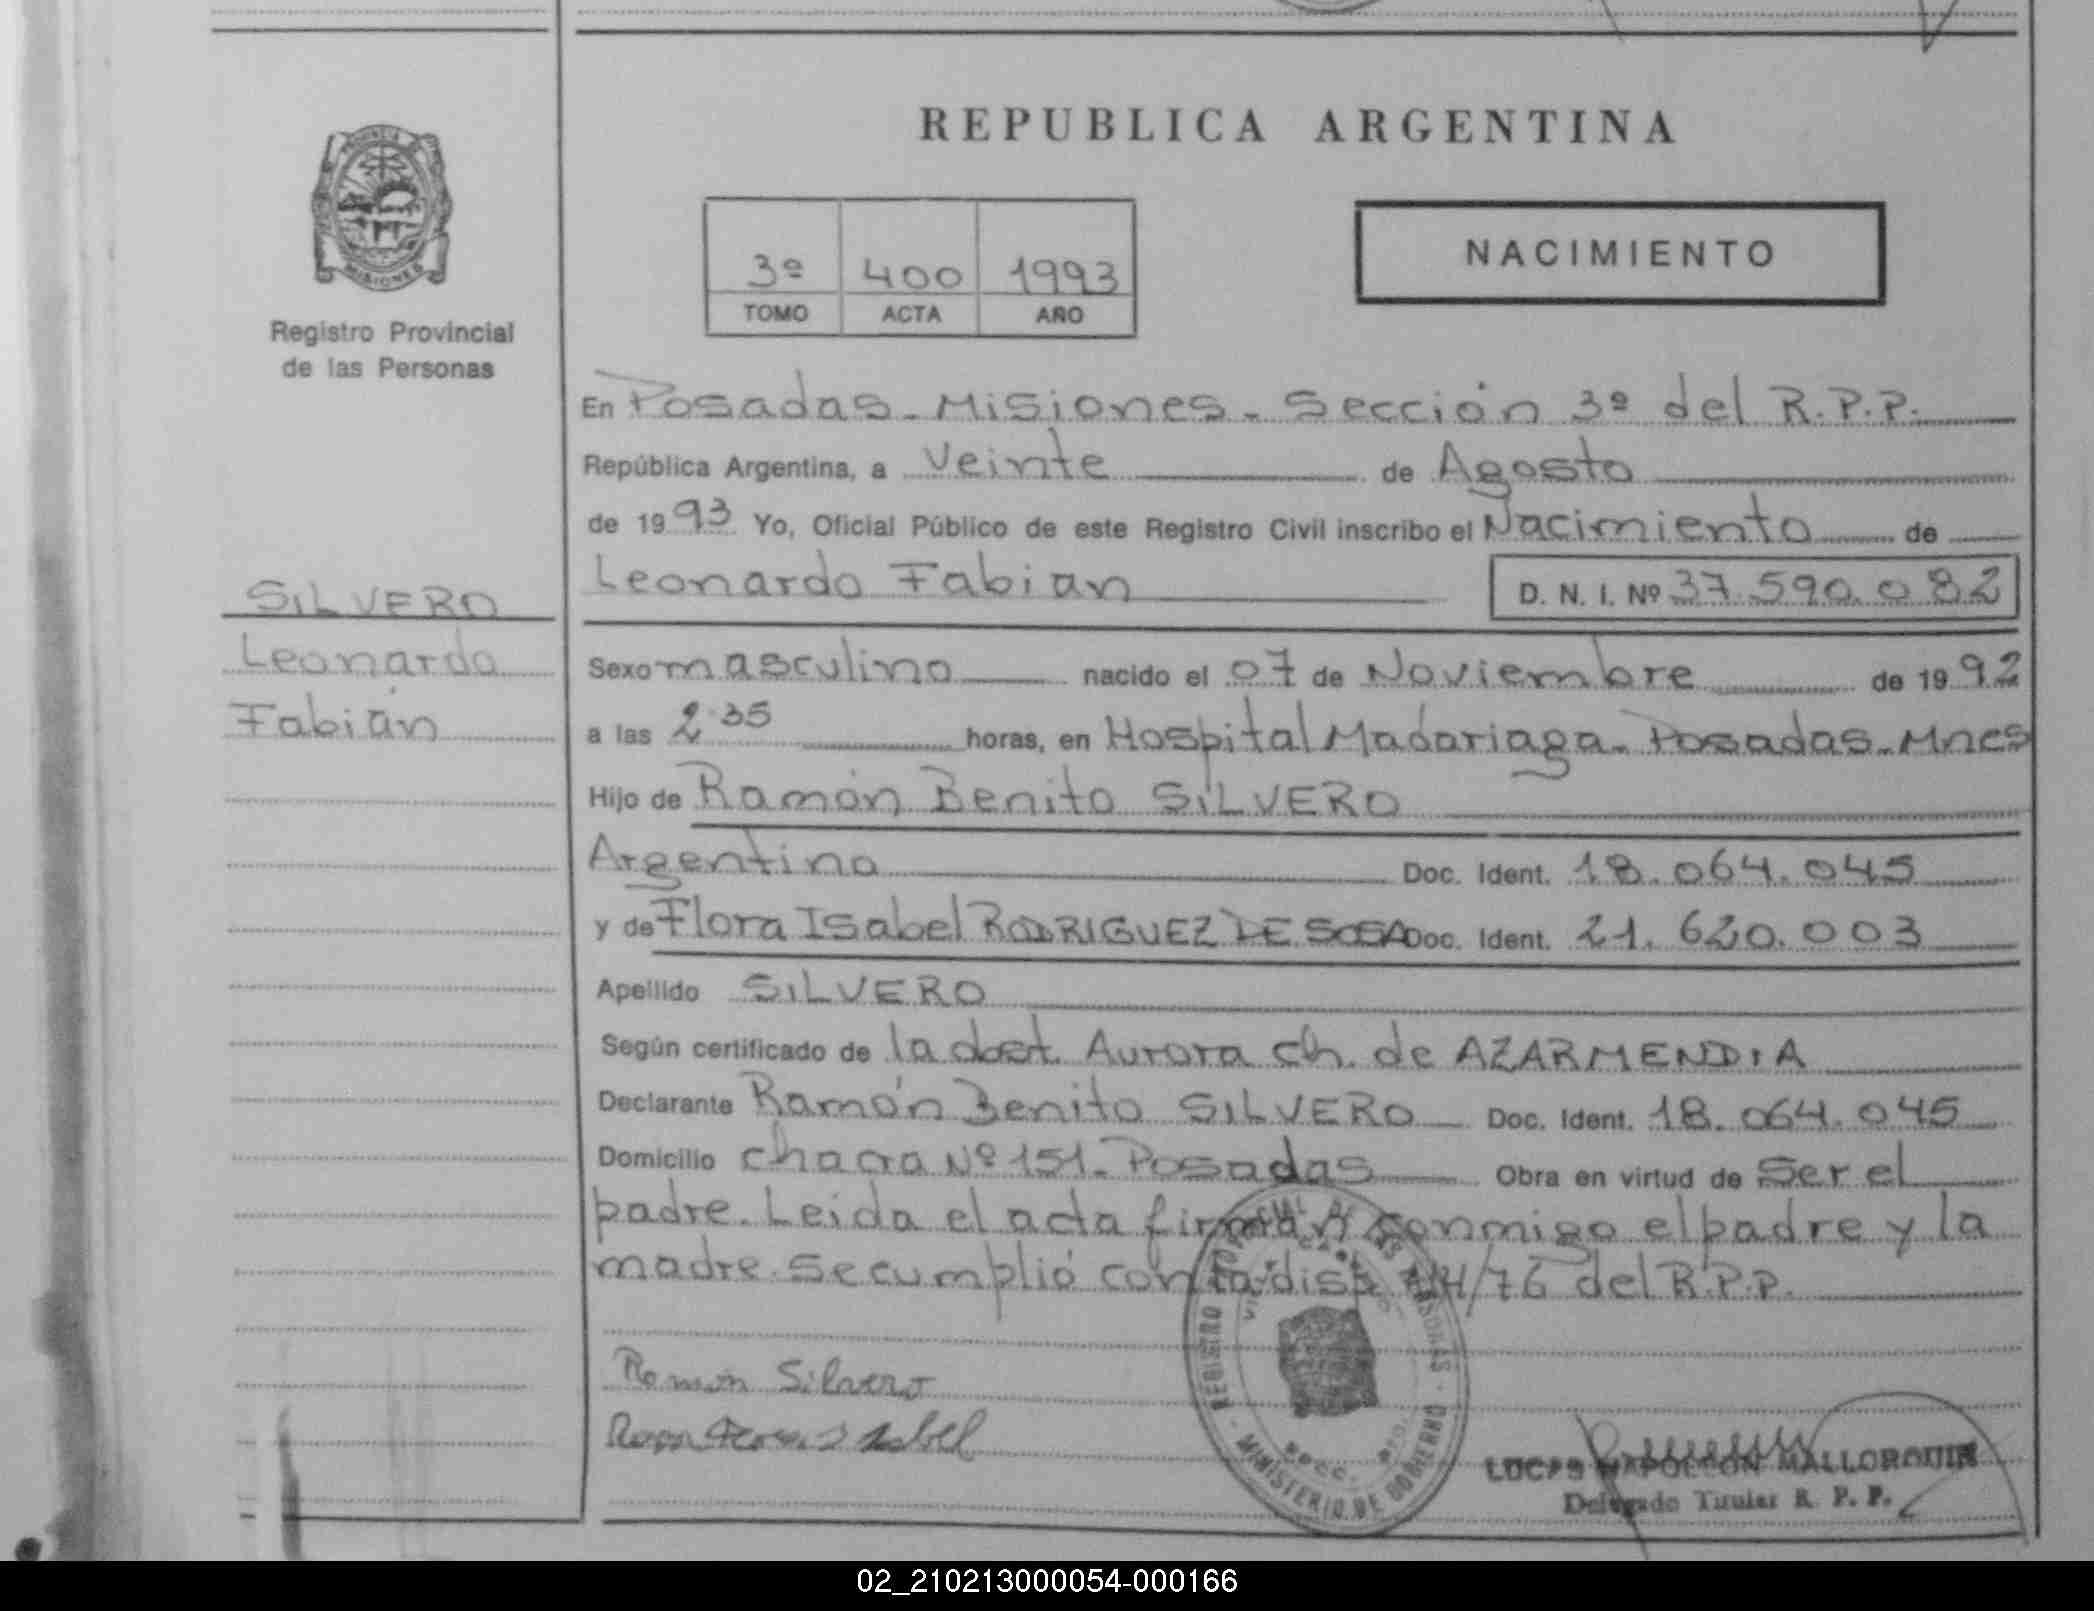 REPUBLICA ARGENTINA
MISIONES
Registro Provincial
de las Personas
3º 400 1993
TOMO ACTA AÑO
NACIMIENTO
En Posadas - Misiones - Sección 3º del R.P.P.
República Argentina, a Veinte de Agosto
de 1993 Yo, Oficial Público de este Registro Civil inscribo el Nacimiento de
Leonardo Fabian D. N. I. Nº 37.590.082
SILVERO
Leonardo
Fabián
Sexo masculino nacido el 07 de Noviembre de 1992
a las 2:35 horas, en Hospital Madariaga - Posadas - Mnes
Hijo de Ramón Benito SILVERO
Argentino Doc. Ident. 18.064.045
y de Flora Isabel RODRIGUEZ DE SOSA Doc. Ident. 21.620.003
Apellido SILVERO
Según certificado de la obst. Aurora Ch. de AZARMENDIA
Declarante Ramón Benito SILVERO Doc. Ident. 18.064.045
Domicilio Chacra Nº 151 - Posadas Obra en virtud de Ser el
padre. Leida el acta firman conmigo el padre y la
madre. Se cumplió con la disp. /76 del R.P.P.
Ramon Silvero
Isabel
REGISTRO PROVINCIAL DE LAS PERSONAS - MINISTERIO DE GOBIERNO
LUCAS NAPOLEON MALLORQUIN
Delegado Titular R. P. P.
02_210213000054-000166